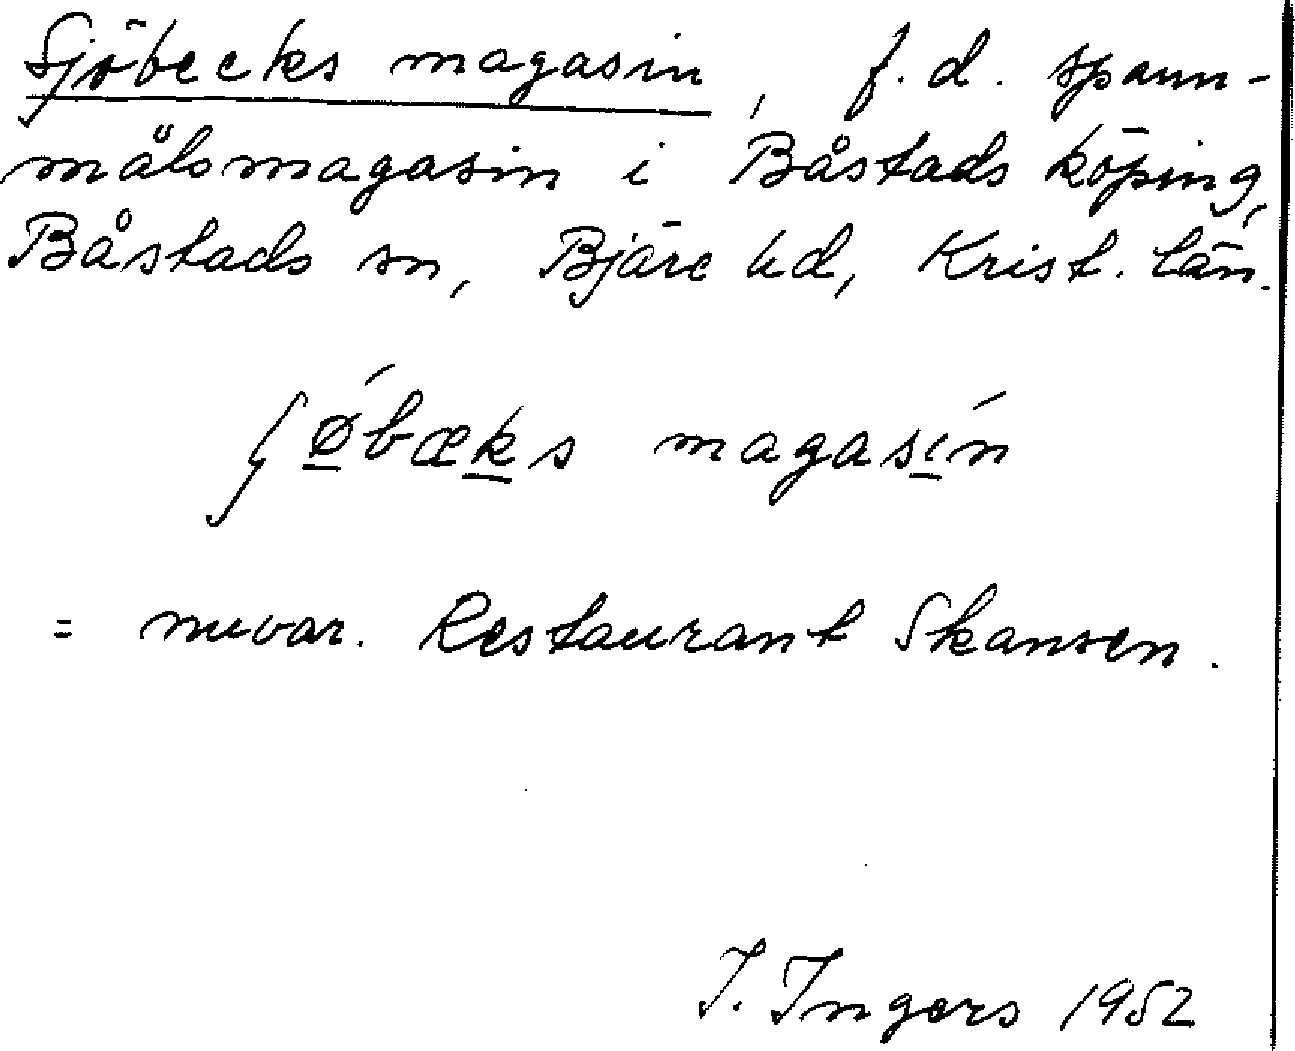 Sjöbecks magasin, f.d. spann-
målsmagasin i Båstads köping,
Båstads sn, Bjäre hd, Krist. län.
ʃǿ̲bæk̲s magasí̲n
= nuvar. Restaurant Skansen.
I. Ingers 1952